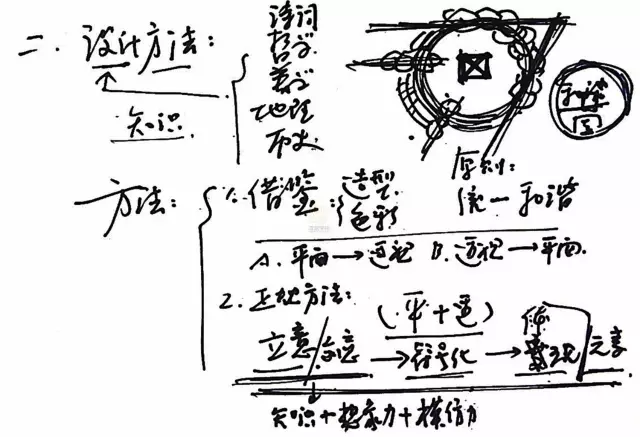 二.设计方法:
知识
诗词
哲学
美学
地理
历史
和谐
回
原则:
统一和谐
方法:
1.借鉴:
造型
色彩
A.平面→透视 B.透视→平面.
2.正规方法:
(平+透)
立意/寓意→符号化→体现/元素
知识+想象力+模仿力